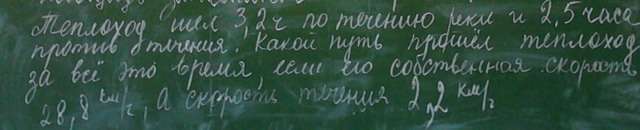 Теплоход шёл 3,2 ч по течению реки и 2,5 часа
против течения. Какой путь прошёл теплоход
за всё это время, если его собственная скорость
28,8 км/ч, а скорость течения 2,2 км/ч